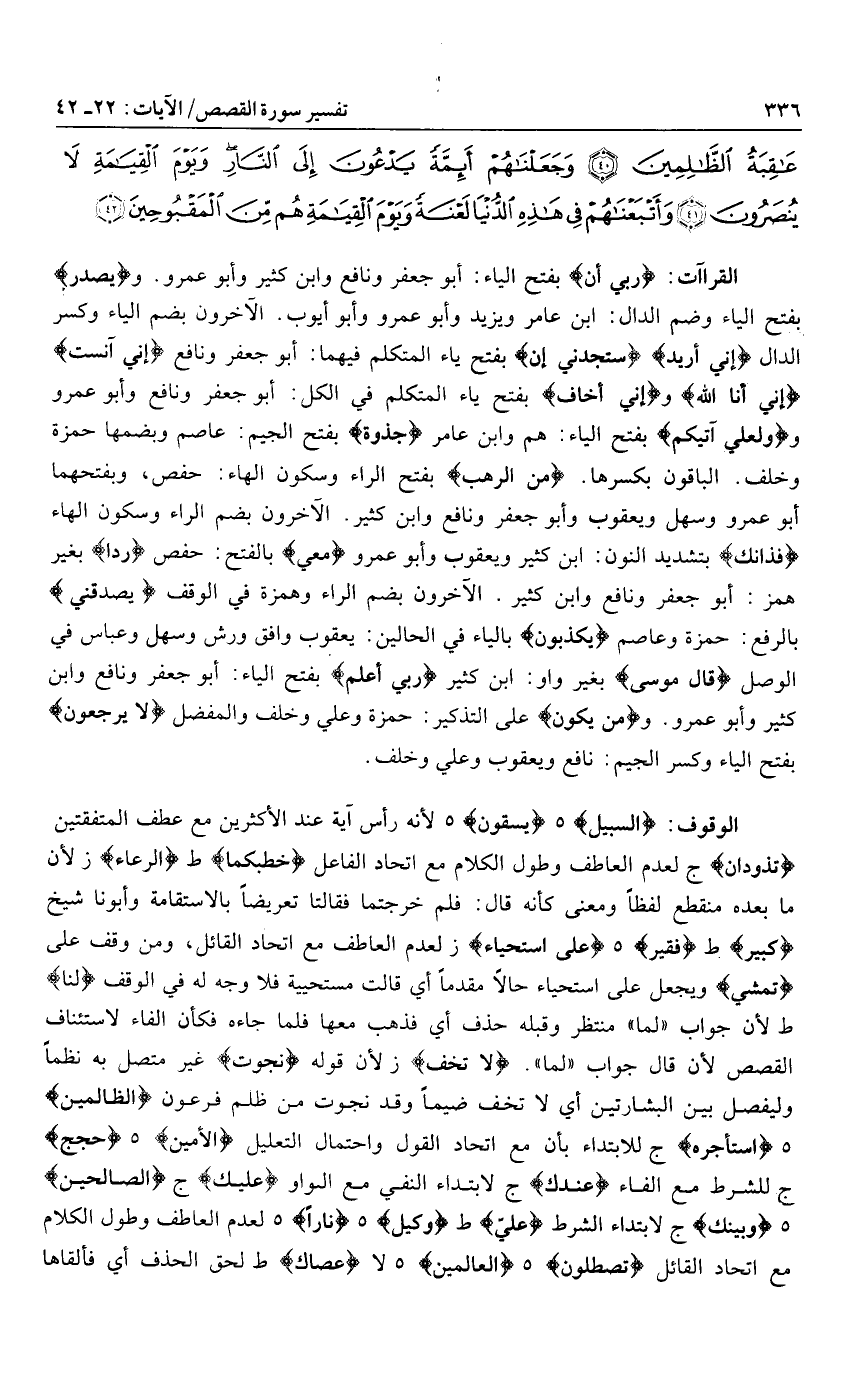 ٣٣٦ تفسير سورة القصص/ الآيات: ٢٢ـ ٤٢
عَٰقِبَةُ ٱلظَّٰلِمِينَ ﴿٤٠﴾ وَجَعَلْنَٰهُمْ أَئِمَّةً يَدْعُونَ إِلَى ٱلنَّارِ وَيَوْمَ ٱلْقِيَٰمَةِ لَا
يُنصَرُونَ ﴿٤١﴾ وَأَتْبَعْنَٰهُمْ فِى هَٰذِهِ ٱلدُّنْيَا لَعْنَةً وَيَوْمَ ٱلْقِيَٰمَةِ هُم مِّنَ ٱلْمَقْبُوحِينَ ﴿٤٢﴾
القراآت: ﴿ربي أن﴾ بفتح الياء: أبو جعفر ونافع وابن كثير وأبو عمرو. و﴿يصدر﴾
بفتح الياء وضم الدال: ابن عامر ويزيد وأبو عمرو وأبو أيوب. الآخرون بضم الياء وكسر
الدال ﴿إني أريد﴾ ﴿ستجدني إن﴾ بفتح ياء المتكلم فيهما: أبو جعفر ونافع ﴿إني آنست﴾
﴿إني أنا الله﴾ و﴿إني أخاف﴾ بفتح ياء المتكلم في الكل: أبو جعفر ونافع وأبو عمرو
و﴿ولعلي آتيكم﴾ بفتح الياء: هم وابن عامر ﴿جذوة﴾ بفتح الجيم: عاصم وبضمها حمزة
وخلف. الباقون بكسرها. ﴿من الرهب﴾ بفتح الراء وسكون الهاء: حفص، وبفتحهما
أبو عمرو وسهل ويعقوب وأبو جعفر ونافع وابن كثير. الآخرون بضم الراء وسكون الهاء
﴿فذانك﴾ بتشديد النون: ابن كثير ويعقوب وأبو عمرو ﴿معي﴾ بالفتح: حفص ﴿ردا﴾ بغير
همز : أبو جعفر ونافع وابن كثير . الآخرون بضم الراء وهمزة في الوقف ﴿ يصدقني ﴾
بالرفع: حمزة وعاصم ﴿يكذبون﴾ بالياء في الحالين: يعقوب وافق ورش وسهل وعباس في
الوصل ﴿قال موسى﴾ بغير واو: ابن كثير ﴿ربي أعلم﴾ بفتح الياء: أبو جعفر ونافع وابن
كثير وأبو عمرو. و﴿من يكون﴾ على التذكير: حمزة وعلي وخلف والمفضل ﴿لا يرجعون﴾
بفتح الياء وكسر الجيم: نافع ويعقوب وعلي وخلف.
الوقوف: ﴿السبيل﴾ ٥ ﴿يسقون﴾ ٥ لأنه رأس آية عند الأكثرين مع عطف المتفقتين
﴿تذودان﴾ ج لعدم العاطف وطول الكلام مع اتحاد الفاعل ﴿خطبكما﴾ ط ﴿الرعاء﴾ ز لأن
ما بعده منقطع لفظاً ومعنى كأنه قال: فلم خرجتما فقالتا تعريضاً بالاستقامة وأبونا شيخ
﴿كبير﴾ ط ﴿فقير﴾ ٥ ﴿على استحياء﴾ ز لعدم العاطف مع اتحاد القائل، ومن وقف على
﴿تمشي﴾ ويجعل على استحياء حالاً مقدماً أي قالت مستحيية فلا وجه له في الوقف ﴿لنا﴾
ط لأن جواب «لما» منتظر وقبله حذف أي فذهب معها فلما جاءه فكأن الفاء لاستئناف
القصص لأن قال جواب «لما». ﴿لا تخف﴾ ز لأن قوله ﴿نجوت﴾ غير متصل به نظماً
وليفصل بين البشارتين أي لا تخف ضيماً وقد نجوت من ظلم فرعون ﴿الظالمين﴾
٥ ﴿استأجره﴾ ج للابتداء بأن مع اتحاد القول واحتمال التعليل ﴿الأمين﴾ ٥ ﴿حجج﴾
ج للشرط مع الفاء ﴿عندك﴾ ج لابتداء النفي مع الواو ﴿عليك﴾ ج ﴿الصالحين﴾
٥ ﴿وبينك﴾ ج لابتداء الشرط ﴿عليّ﴾ ط ﴿وكيل﴾ ٥ ﴿ناراً﴾ ٥ لعدم العاطف وطول الكلام
مع اتحاد القائل ﴿تصطلون﴾ ٥ ﴿العالمين﴾ ٥ لا ﴿عصاك﴾ ط لحق الحذف أي فألقاها